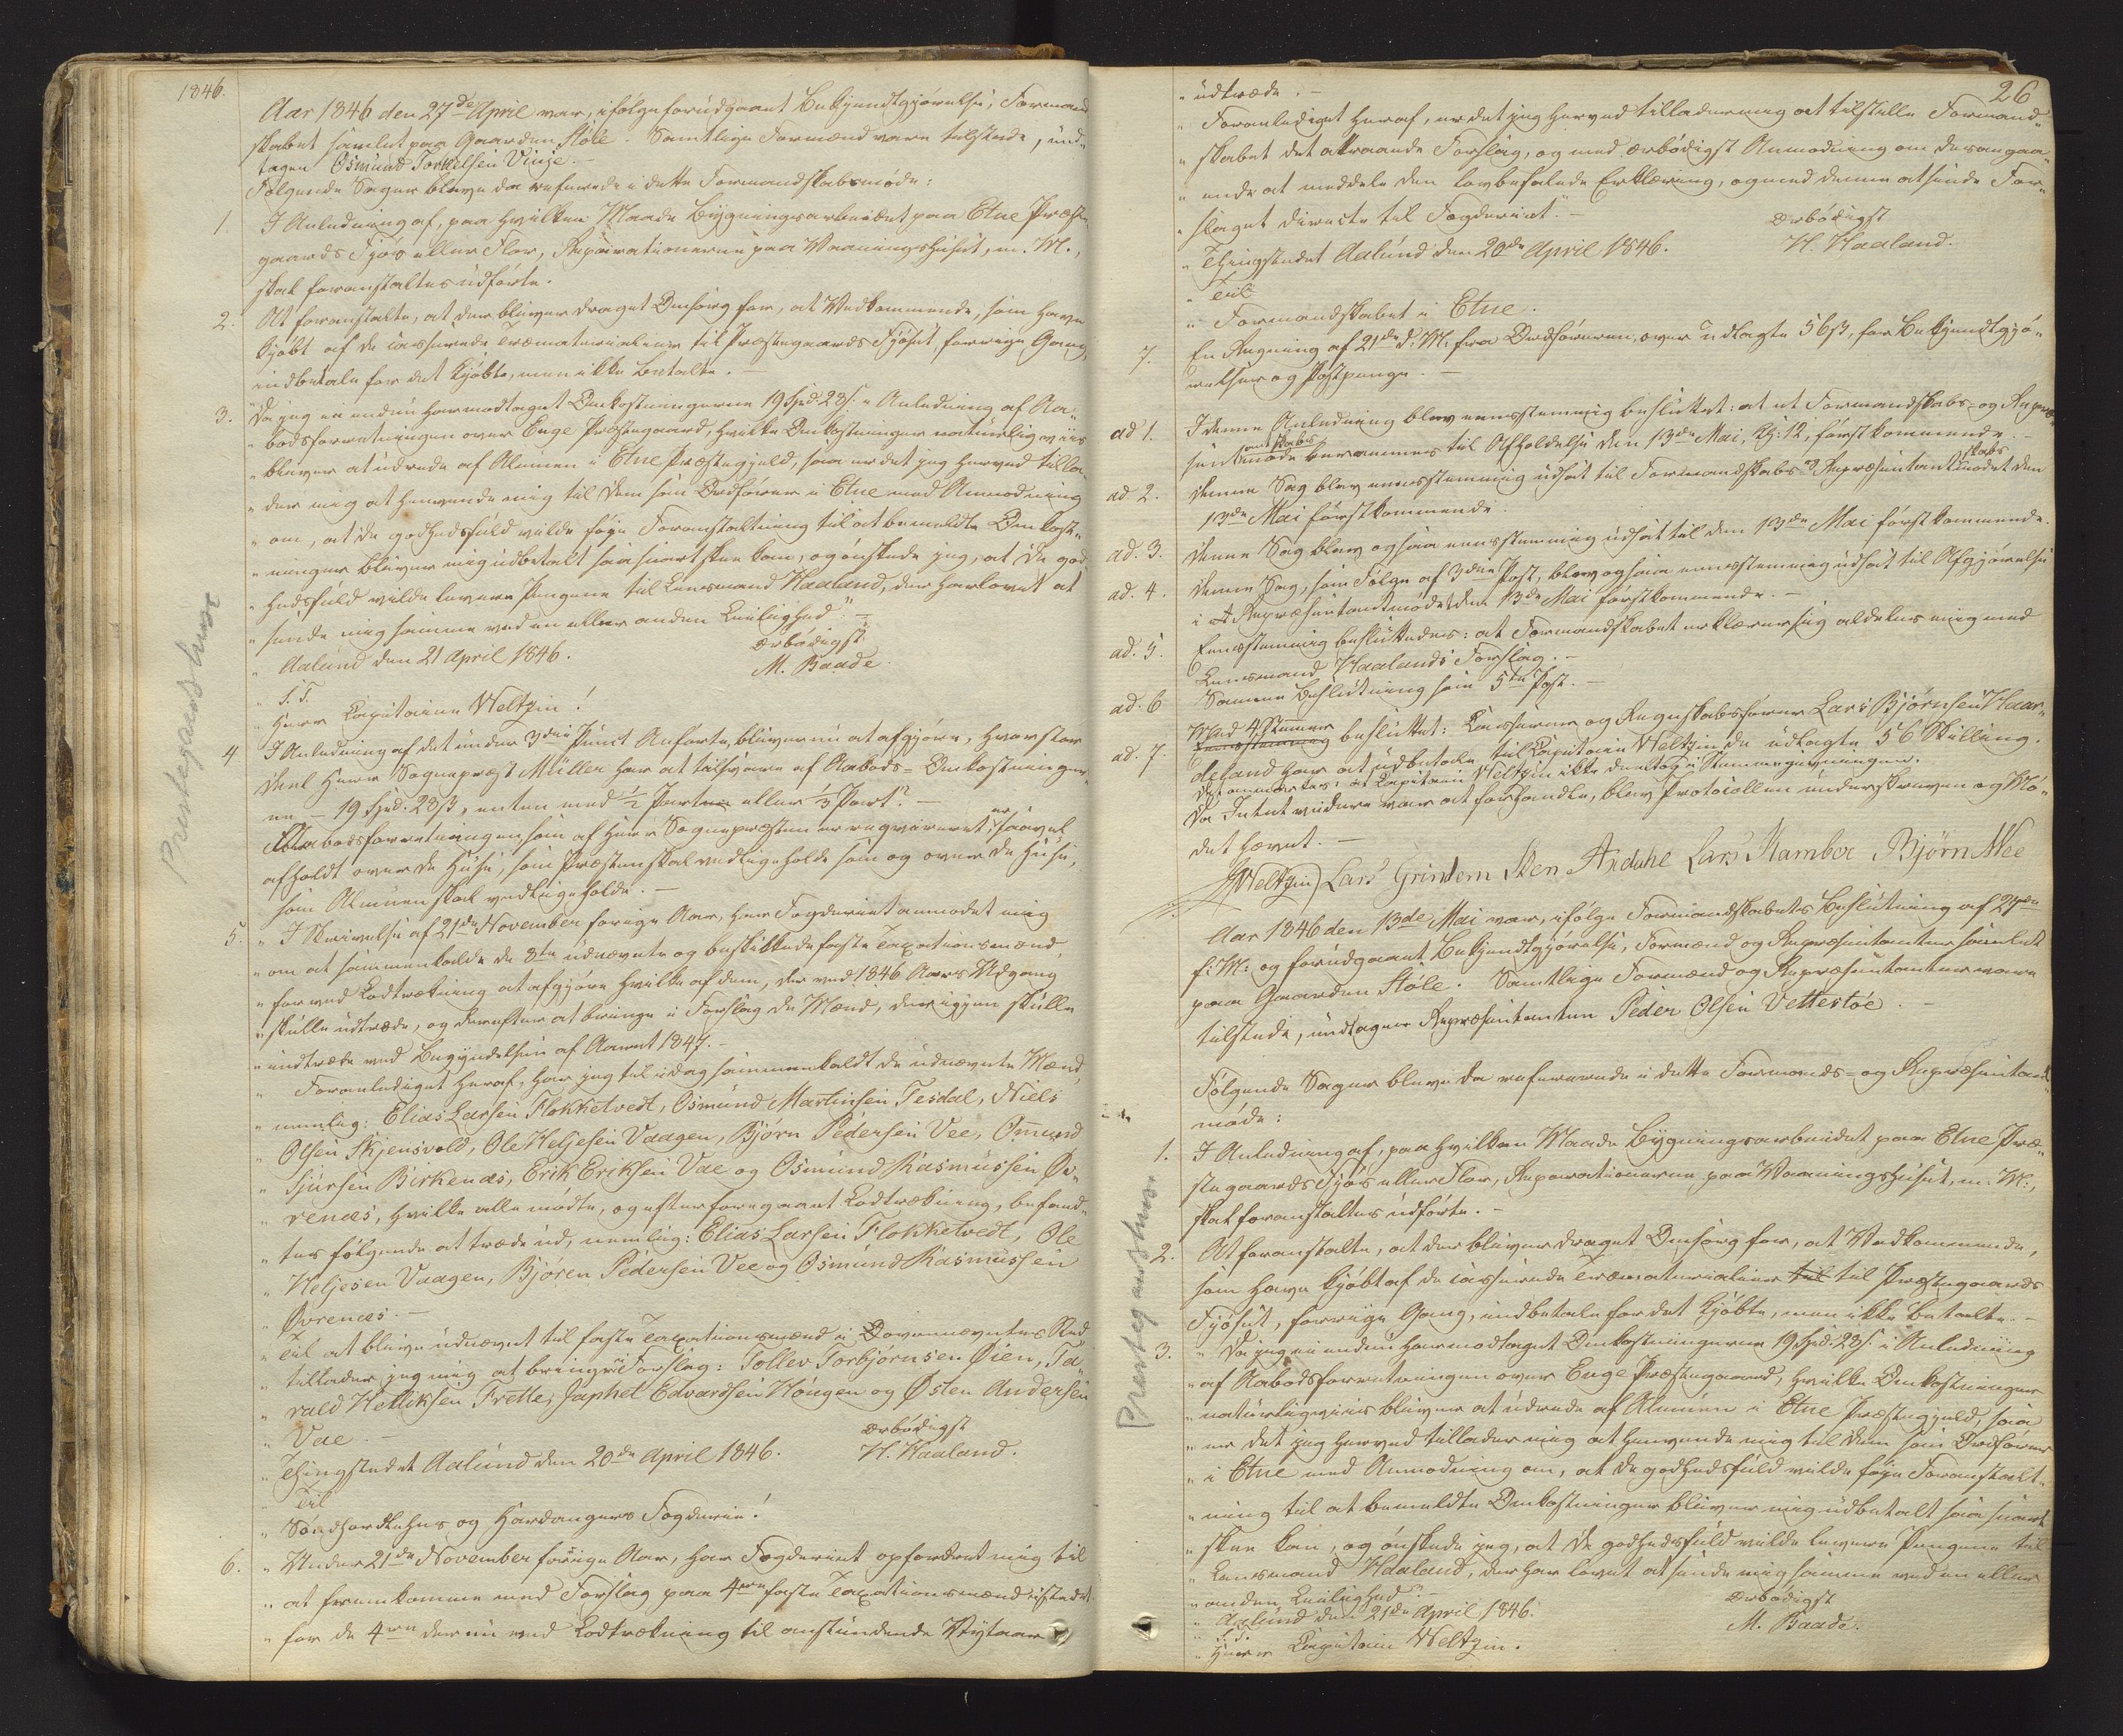 1846.
Aar 1846 den 27de April var, ifølge forudgaaet Bekjendtgjørelse, Formand
skabet samlet paa Gaarden Støle. Samtlige Formænd vare tilstede, und-
tagen Osmund Torkelsen Vinje. –
Følgende Sager bleve da refererede i dette Formandskabsmøde:
1. I Anledning af, paa hvilken Maade Bygningsarbeidet paa Etne Præste-
gaards Fjøs eller Flor, Reparationerne paa Vaaningshuset, m. M.,
skal foranstaltes udførte.
2. At foranstalte, at der bliver draget Omsorg for, at Vedkommende, som have
kjøbt af de casserede Træmaterialier til Præstegaards Fjøset, forrige Gang,
indbetale for det kjøbte, men ikke betalte. –
3. "Da jeg ei endnu har modtaget Omkostningerne 19 Spd. 23 s. i Anledning af Aa-
" bodsforretningen over Enge Præstegaard, hvilke Omkostninger naturligviis
" bliver at udrede af Almuen i Etne Præstegjeld, saa er det jeg herved tilla-
" der mig at henvende mig til Dem som Ordfører i Etne med Anmodning
" om, at De godhedsfuld vilde føye Foranstaltning til at bemeldte Omkost-
" ninger bliver mig udbetalt saa snart skee kan, og ønskede jeg, at De god
" hedsfuld vilde levere Pengene til Lensmand Haaland, der har lovet at
" sende mig samme ved en eller anden Leilighed". –
" Aalund den 21 April 1846. Ærbødigst
M. Baade.
" S. T.
" Herr Capitaine Weltzin!
4. I Anledning af det under 3die Punct Anførte, bliver nu at afgjøre, hvor stor
Deel Herr Sognepræst Müller har at tilsvare af Aabods-Omkostninger
ne – 19 Spd. 23 ß, enten med ½ Part eller ⅓ Part? –
Aabodsforretningen som af Herr Sognepræsten er requireret, er saavel
afholdt over de Huse, som Præsten skal vedligeholde som og over de Huse,
som Almuen skal vedligeholde. –
Prestegaards huse
5. " I Skrivelse af 21de November forrige Aar, har Fogderiet anmodet mig
" om at sammenkalde de 8te udnævnte og beskikkede faste Taxationsmænd
" for ved Lodtrækning at afgjøre hvilke af dem, der ved 1846 Aars Udgang
" skulle udtræde, og derefter at bringe i Forslag de Mænd, der igjen skulle
" indtræde ved Begyndelsen af Aaret 1847. –
" Foranlediget heraf, har jeg til idag sammenkaldt de udnævnte Mænd,
" nemlig: Elias Larsen Flokketvedt, Osmund Martinsen Tesdal, Niels
" Olsen Skjensvold, Ole Heljesen Vaagen, Bjørn Pedersen Vee, Omund
" Sjursen Birkenæs, Erik Eriksen Vae og Osmund Rasmussen Øv-
" renæs, hvilke alle mødte, og efter foregaaet Lodtrækning, befand-
" tes følgende at træde ud, nemlig: Elias Larsen Flokketvedt, Ole
" Heljesen Vaagen, Bjøren Pedersen Vee og Osmund Rasmussen
" Øvrenæs. –
" Til at blive udnævnt til faste Taxationsmænd i Ovennævntes Sted
" tillader jeg mig at bringe i Forslag: Tollev Torbjørnsen Øien, Ta-
" rald Hetliksen Frette, Japhet Edvardsen Hougen og Østen Andersen
" Vae. –
" Thingstedet Aalund den 20de April 1846. Ærbødigst
H. Haaland.
" Til
" Søndhordlehns og Hardangers Fogderie!
6. " Under 21de November forrige Aar, har Fogderiet opfordret mig til
" at fremkomme med Forslag paa 4re faste Taxationsmænd istedet
" for de 4re der nu ved Lodtrækning til anstundende Nytaar
26
" udtræde. –
" Foranlediget heraf, er det jeg herved tillader mig at tilstille Formand-
" skabet det attraaede Forslag, og med ærbødigst Anmodning om desangaa-
" ende at meddele den lovbefalede Erklæring, og med denne at sende For-
" slaget directe til Fogderiet". –
" Thingstedet Aalund den 20de April 1846. Ærbødigst
H. Haaland.
" Til
" Formandskabet i Etne.
7. En Regning af 21de d. M. fra Ordføreren, over udlagte 56 ß, for Bekjendtgjø-
relser og Postpenge. –
ad 1. I denne Anledning blev eensstemmig besluttet: at et Formandskabs- og Repræ-
sentantskabs møde berammes til Afholdelse den 13de Mai, Kl: 12, førstkommende. –
ad 2. Denne Sag blev eensstemmig udsat til Formandskabs og Repræsentantskabs mødet den
13de Mai førstkommende.
ad. 3. Denne Sag blev ogsaa eensstemmig udsat til den 13de Mai førstkommende.
ad. 4. Denne Sag, som Følge af 3die Post, blev ogsaa eensstemmig udsat til Afgjørelse
i et Repræsentantmøde den 13de Mai førstkommende. –
ad. 5. Eensstemmig besluttedes: at Formandskabet erklærer sig aldeles enig med
Lensmand Haalands Forslag. –
ad. 6 Samme Beslutning som 5te Post. –
ad. 7. Med 4 Stemmer
Eensstemmig besluttet: Kasserer og Regnskabsfører Lars Bjørnsen Haar-
deland har at udbetale til Capitain Weltzin de udlagte 56 Skilling.
Det anmærkes, at Capitain Weltzin ikke deeltog i Stemmegivningen.
Da Intet videre var at forhandle, blev Protocollen underskreven og Mø-
det hævet. –
Weltzin Lars Grindem Sten Ardahl Lars Hamber Bjørn Nee
Aar 1846 den 13de Mai var, ifølge Formandskabets Beslutning af 27de
f: M: og forudgaaet Bekjendtgjørelse, Formænd og Repræsentanter samlet
paa Gaarden Støle. Samtlige Formænd og Repræsentanter vare
tilstede, undtagen Repræsentanten Peder Olsen Vettestøe. –
Følgende Sager bleve da refererede i dette Formands- og Repræsentant
møde:
1. I Anledning af, paa hvilken Maade Bygningsarbeidet paa Etne Præ-
stegaards Fjøs eller Flor, Reparationerne paa Vaaningshuset, m. M.,
skal foranstaltes udførte. –
2. At foranstalte, at der bliver draget Omsorg for, at Vedkommende,
som have kjøbt af de casserede Træmaterialier til til Præstegaards
Fjøset, forrige Gang, indbetale for det kjøbte, men ikke betalte. –
Prestegaardshuse
3. " Da jeg ei endnu har modtaget Omkostningerne 19 Spd. 23 s. i Anledning
" af Aabodsforretningen over Enge Præstegaard, hvilke Omkostninger
" naturligviis bliver at udrede af Almuen i Etne Præstegjeld, saa
" er det jeg herved tillader mig at henvende mig til Dem som Ordfører
" i Etne med Anmodning om, at De godhedsfuld vilde føye Foranstalt-
" ning til at bemeldte Omkostninger bliver mig udbetalt saa snart
" skee kan, og ønskede jeg, at De godhedsfuld vilde levere Pengene til
" Lensmand Haaland, der har lovet at sende mig samme ved en eller
" anden Leilighed". –
" Aalund den 21de April 1846. Ærbødigst
M. Baade.
" S. T.
" Herr Capitain Weltzin.